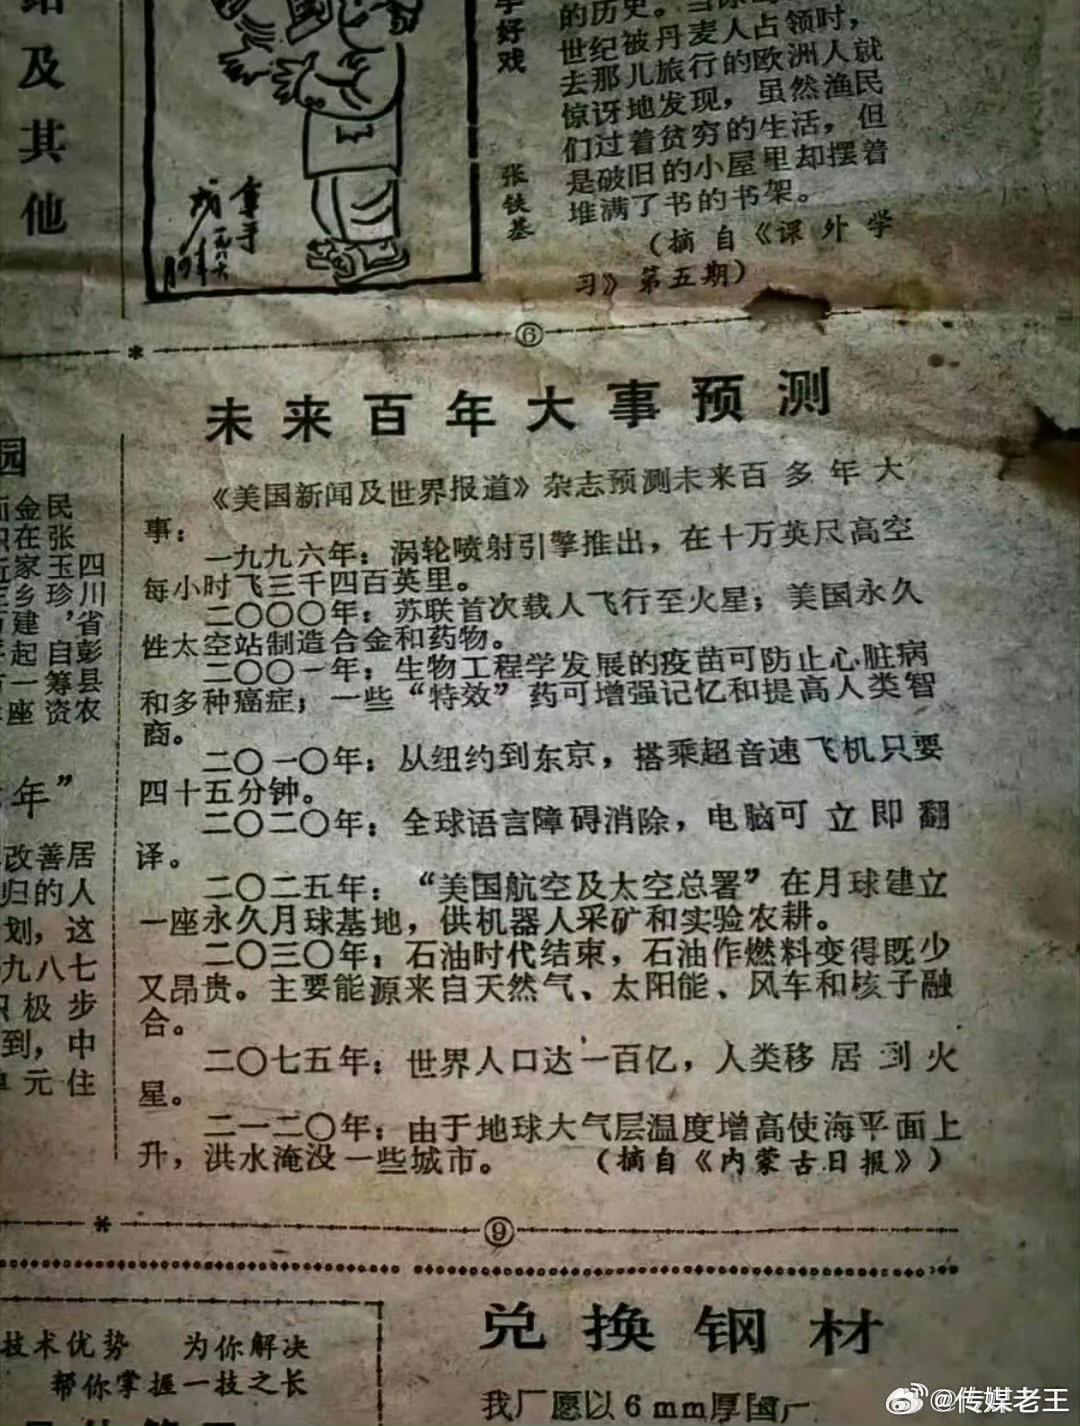 及其他
好戏
张铁基
的历史。
世纪被丹麦人占领时，
去那儿旅行的欧洲人就
惊讶地发现，虽然渔民
们过着贫穷的生活，但
是破旧的小屋里却摆着
堆满了书的书架。
（摘自《课外学
习》第五期）
⑥
未来百年大事预测
《美国新闻及世界报道》杂志预测未来百多年大
事：
一九九六年：涡轮喷射引擎推出，在十万英尺高空
每小时飞三千四百英里。
二〇〇〇年：苏联首次载人飞行至火星；美国永久
性太空站制造合金和药物。
二〇〇一年：生物工程学发展的疫苗可防止心脏病
和多种癌症；一些“特效”药可增强记忆和提高人类智
商。
二〇一〇年：从纽约到东京，搭乘超音速飞机只要
四十五分钟。
二〇二〇年：全球语言障碍消除，电脑可立即翻
译。
二〇二五年：“美国航空及太空总署”在月球建立
一座永久月球基地，供机器人采矿和实验农耕。
二〇三〇年：石油时代结束，石油作燃料变得既少
又昂贵。主要能源来自天然气、太阳能、风车和核子融
合。
二〇七五年：世界人口达一百亿，人类移居到火
星。
二一二〇年：由于地球大气层温度增高使海平面上
升，洪水淹没一些城市。（摘自《内蒙古日报》）
⑨
园
金民
在张
家玉四
乡珍川
建，省
起自彭
一筹县
座资农
年”
改善居
归的人
划，这
九八七
极步
到，中
单元住
技术优势 为你解决
帮你掌握一技之长
兑换钢材
我厂愿以6mm厚国
@传媒老王